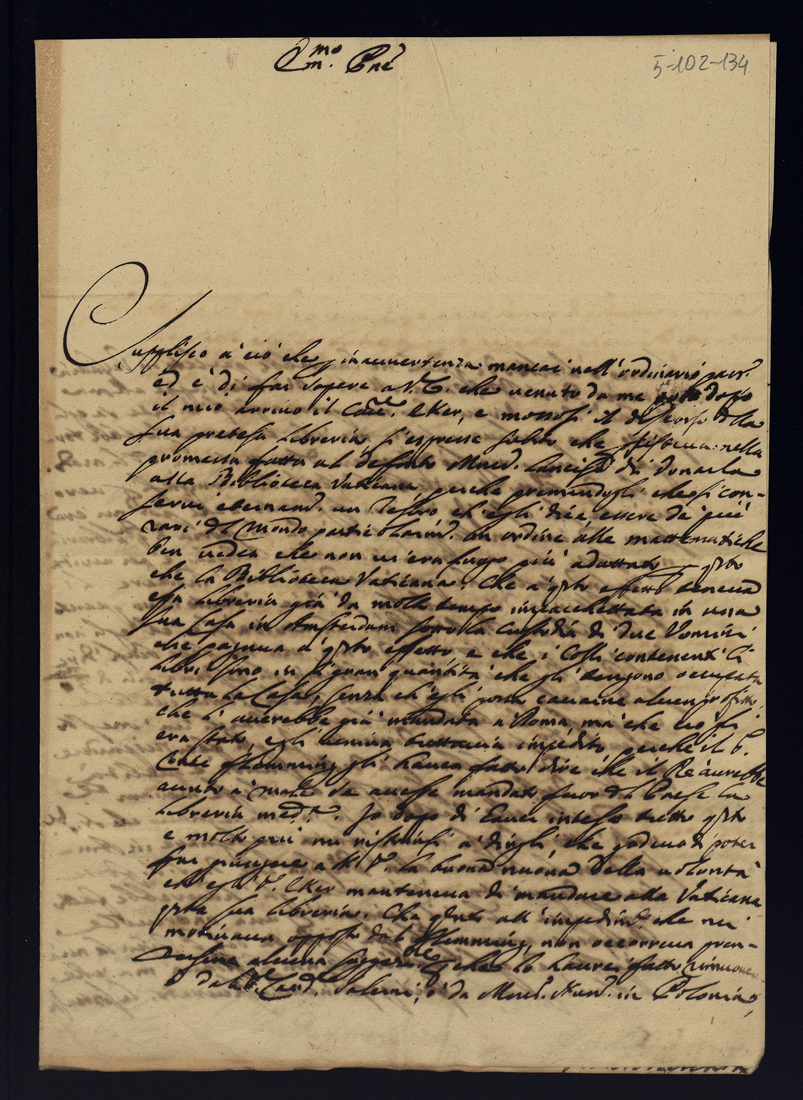 5-102-134
Em.mo P.ne
Supplisco à ciò che p inauuertenza mancai nell'ordinario pass.
ed è di far sapere a V. E. che uenuto da me dopo
il neio arriuo il Cau. Eker, e mossosi il discorso della
sua pretesa libreria, s'espresse subito che sisteua nella
promessa fatta al defonto Mons. Lancisi di donarla
alla Biblioteca Vaticana, perche premendogli che si con-
serui un Tesoro ch'egli dice essere de più
rari del Mondo particolarm. in ordine alle mattematiche
ben uedea che non ui era luogo più adattato p q.sto
che la Biblioteca Vaticana. Che a q.sto effetto teneua
essa libreria già da molto tempo impacchettata in una
sua Casa in Amsterdam sotto la custodia di due Uomini
che pagaua a q.sto effetto e che i Colli contenenti li
libri sono in sì gran quantità che gli tengono occupata
tutta la Casa, senza ch'egli possa cauarne alcun profitto,
che l'auerebbe già mandata a Roma, ma che ciò fi
era stato, e gli ueniua tuttauia impedito perche il S.
Conte Flemming gli haueua fatto dire che il Rè aurebbe
auuto à male se auesse mandato fuor del Paese la
libreria med.a. Io dopo di hauer inteso tutto q.sto
e molto più mi ristrinsi a dirgli che godeuo di poter
far giungere a V. E. la buona nuoua della uolontà
ch'egli S. Eker manteneua di mandare alla Vaticana
q.sta sua libreria. Che q.nto all'impedim.to che ui
metteua opposto dal Flemming, non occorreua pren-
dersene alcuna che lo haurei fatto rimuouere
ò dal S. Card. Salerni, ò da Mons. Nun. in Polonia,